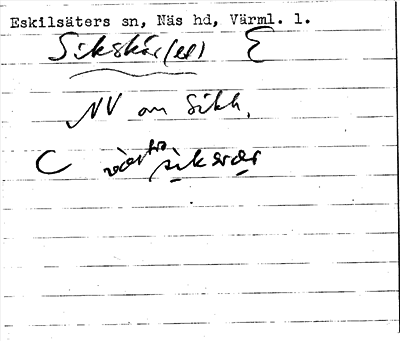 Eskilsäters sn, Näs hd, Värml. l.
Sikskär(et) E
NV om Sikh.
C